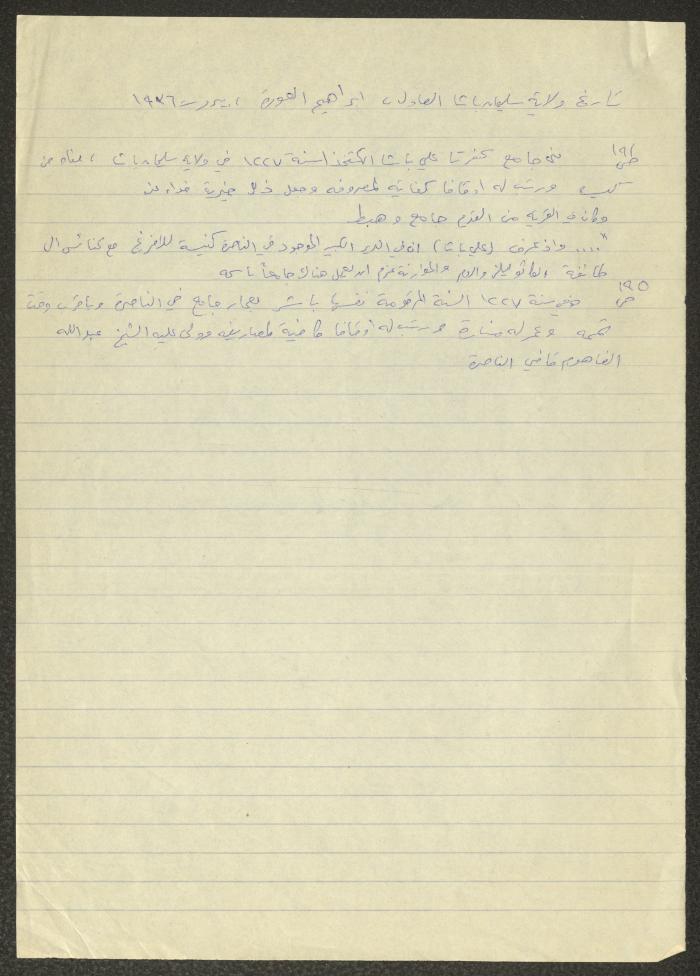 تاريخ ولاية سليمان باشا العادل ، ابراهيم العورة ، بيروت ١٩٣٦
ص ١٩١ جامع كفرتا علي باشا الكتخدا سنة ١٢٢٧ في ولاية سليمان باشا ، بناه من
كيسه ورتب له اوقافا كفاية لمصروفه وجعل ذلك خيرية فداء عن
وكان في القرية من القدم جامع وهبط
".... واذ عرف (علي باشا) ان في الدير الكبير الموجود في الناصرة كنيسة للافرنج مع كنائس الى
طائفة الكاثوليك والروم والموارنة عزم ان يعمل هناك جامعا باسمه
ص ١٩٥ وفي سنة ١٢٢٧ السنة المرقومة نفسها باشر بعمار جامع في الناصرة وباقرب وقت
تممه وعمر له منارة ورتب له اوقافا كافية لمصاريفه وولى عليه الشيخ عبدالله
الفاهوم قاضي الناصرة